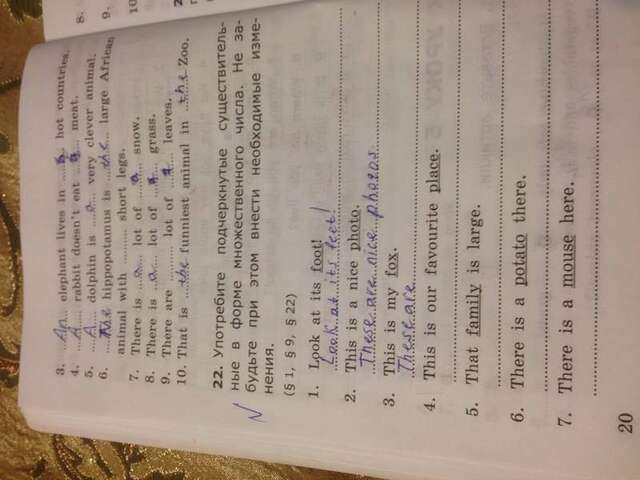 3. An elephant lives in ........ hot countries.
4. A rabbit doesn't eat a meat.
5. A dolphin is a very clever animal.
6. The hippopotamus is the large African
animal with .......... short legs.
7. There is a lot of a snow.
8. There is a lot of grass.
9. There are .......... lot of leaves.
10. That is the funniest animal in the Zoo.
22. Употребите подчеркнутые существитель-
ные в форме множественного числа. Не за-
будьте при этом внести необходимые изме-
нения.
(§ 1, § 9, § 22)
1. Look at its foot!
Look at its feet!
2. This is a nice photo.
These are nice photos
3. This is my fox.
These are
4. This is our favourite place.
5. That family is large.
6. There is a potato there.
7. There is a mouse here.
20
8.
9.
10